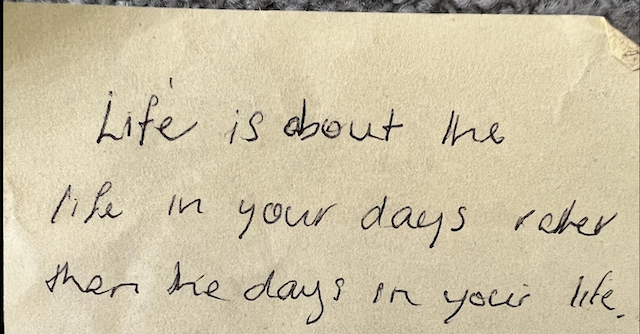 Life is about the
life in your days rather
than the days in your life.